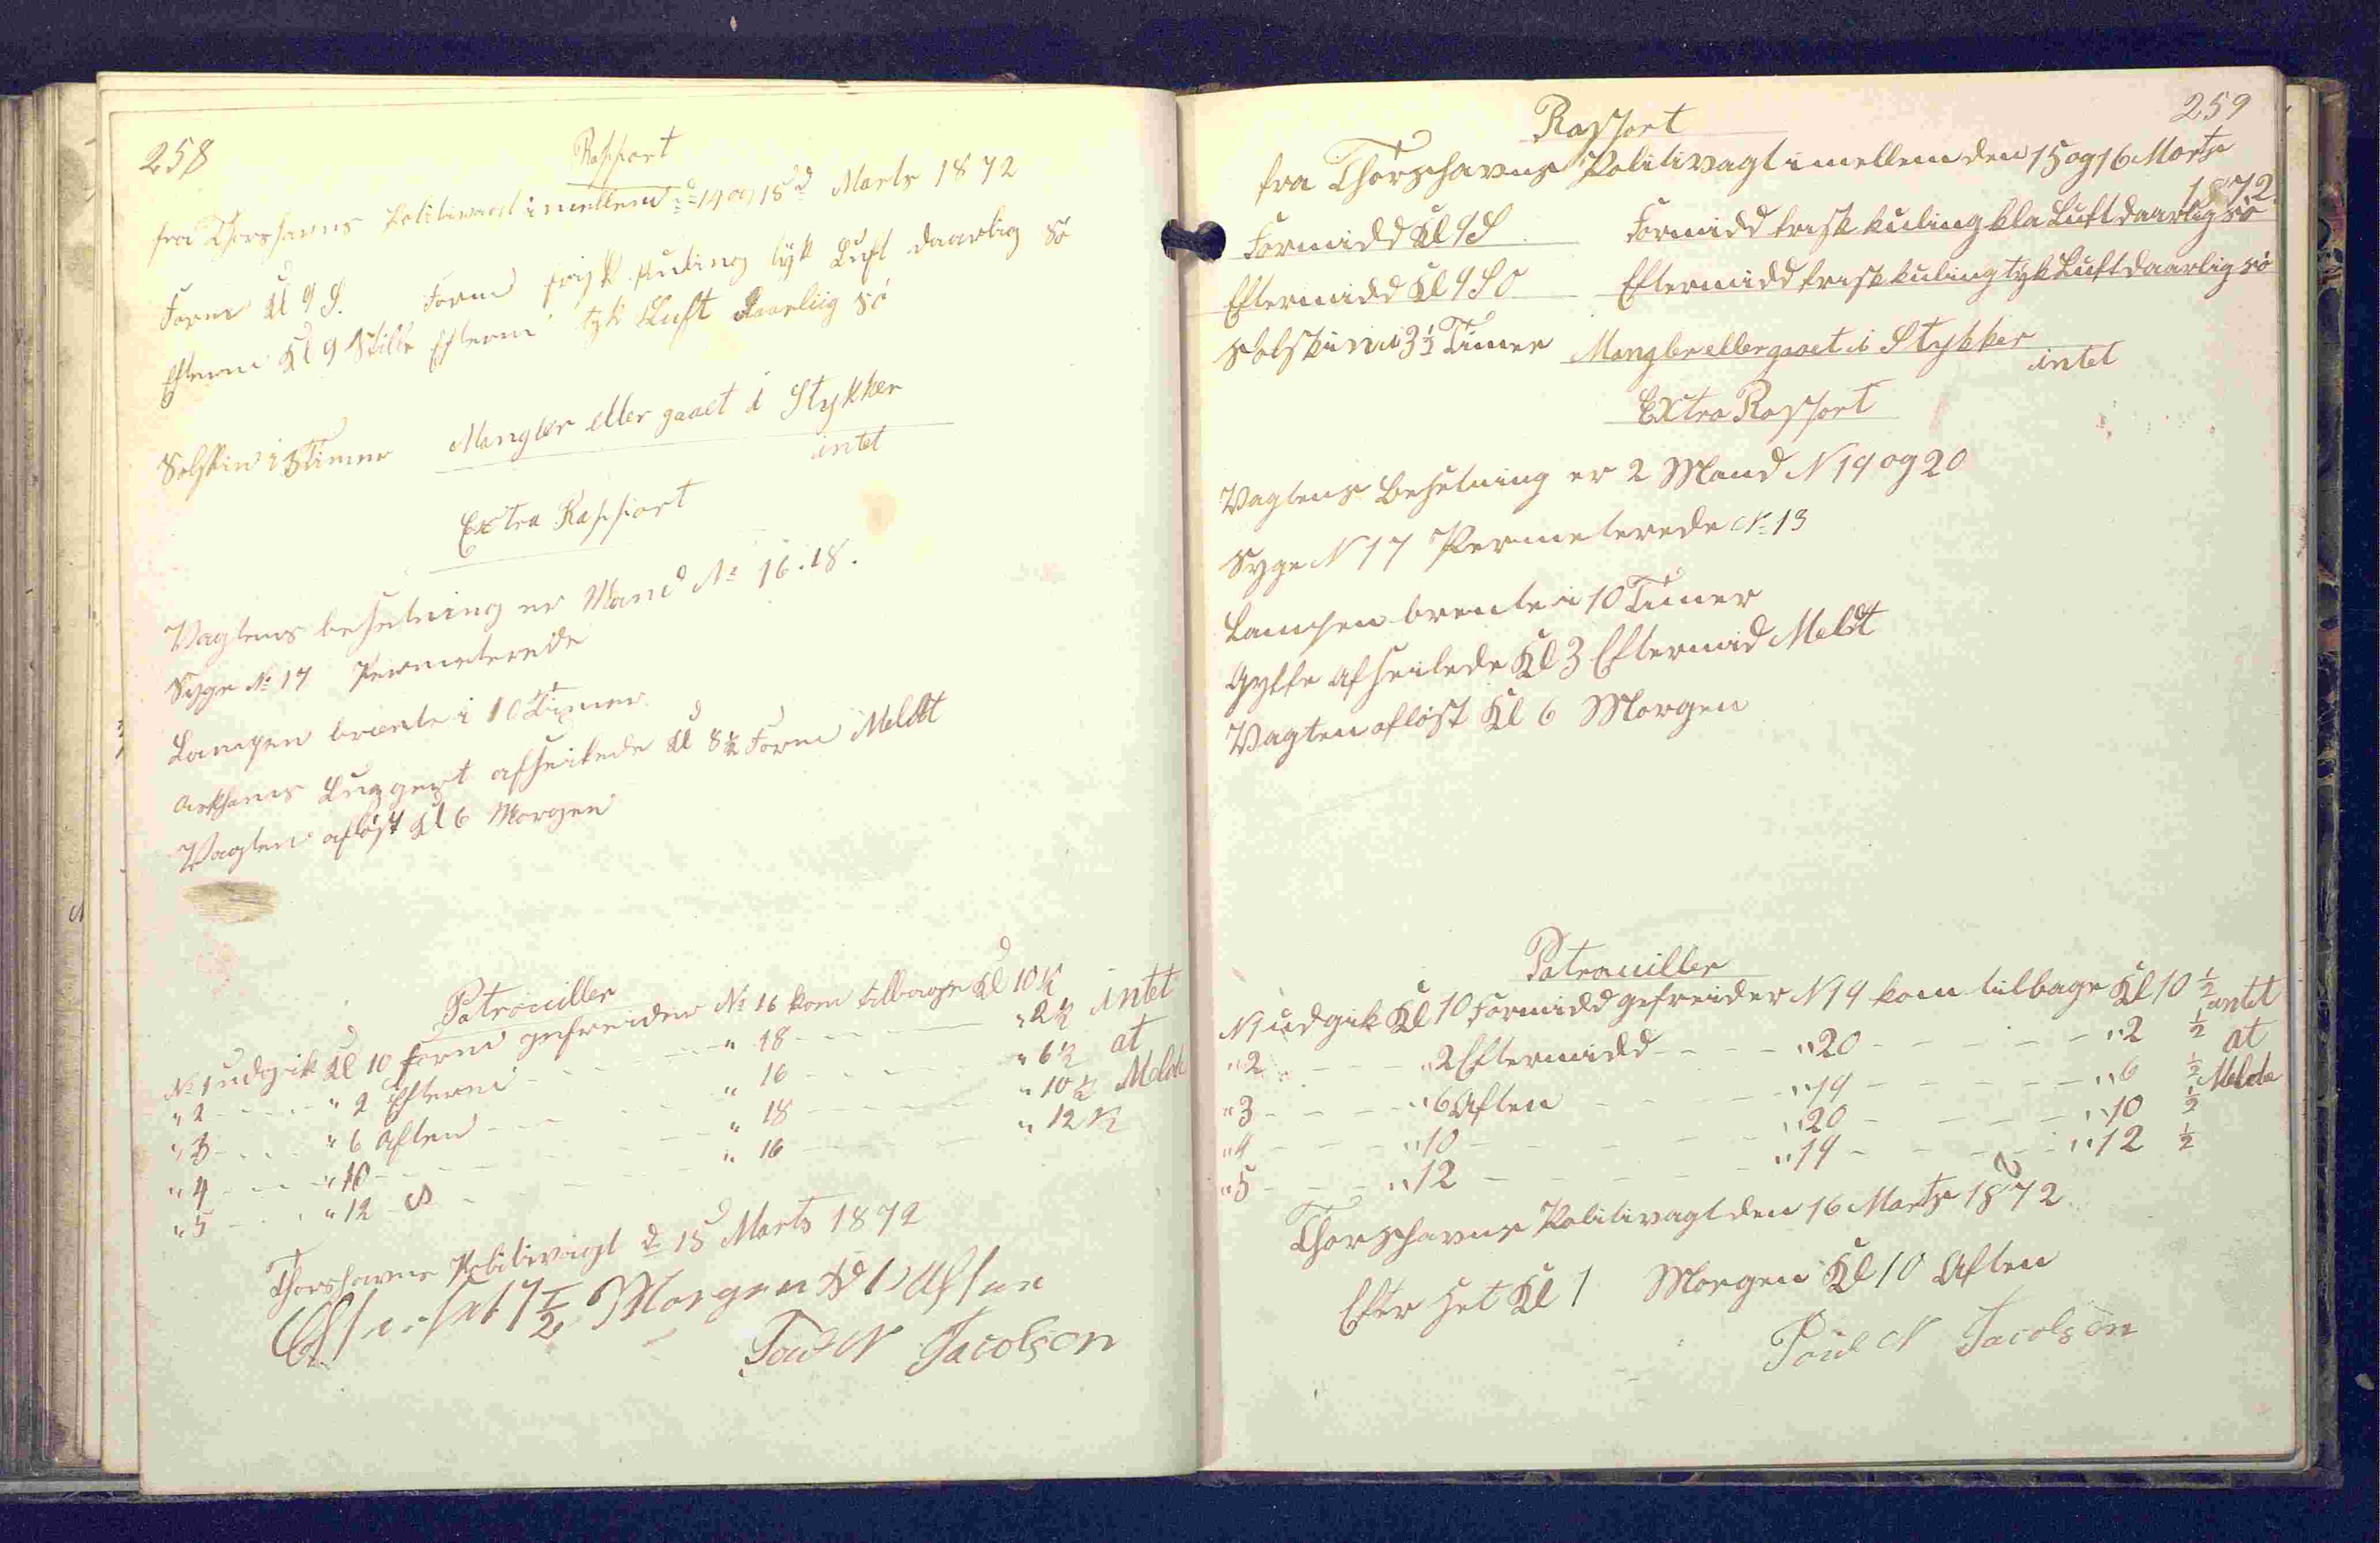 258
Rapport
fra Thorshavns Politivagt imellem d 14 og 15d Marts 1872
Form Kl 9 S. Form frisk Kuling tyk Luft daarlig Sö
Efterm Kl 9 Stille Efterm tyk Luft daarlig Sö
Solskin i 3 Timer Mangler eller gaaet i Stykker
intet
Extra Rapport
Vagtens besetning er Mand No 16. 18.
Syge No 17 Permeterede
Lampen brente i 10 Timer
afseilede Kl 8½ Form Meldt
Vagten aflöst Kl 6 Morgen
Patrouiller
No 1 udgik Kl 10 Form gefreider No 16 kom tilbage Kl 10½
" 2 - - - " 2 Efterm - - - " 18 - - - " 2½ intet
" 3 - - - " 6 Aften - - - " 16 - - - " 6½ at
" 4 - - - " 10 - - - " 18 - - - " 10½ Melde
" 5 - - - " 12 - - - " 16 - - - " 12½
Thorshavns Politivagt d 15 Marts 1872
Efterset 7½ Morgen Aften
Poul N Jacobsen
259
Rapport
fra Thorshavns Politivagt imellem den 15 og 16 Marts
1872.
Formidd Kl 9 S Formidd frisk kuling kla Luft daarlig sö
Eftermidd Kl 9 S O Eftermidd frisk kuling tyk Luft daarlig sö
Solskin i 3½ Timer Mangler eller gaaet i Stykker
intet
Extra Rapport
Vagtens Besetning er 2 Mand N 19 og 20
Syge N 17 Permeterede N 13
Lampen brente i 10 Timer
Gylfe afseilede Kl 3 Eftermid Meldt
Vagten aflöst Kl 6 Morgen
Patrouiller
N 1 udgik Kl 10 Formidd gefreider N 19 kom tilbage Kl 10 ½
" 2 - - - " 2 Eftermidd - - - " 20 - - - " 2 ½ intet
" 3 - - - " 6 Aften - - - " 19 - - - " 6 ½ at
" 4 - - - " 10 - - - " 20 - - - " 10 ½ Melde
" 5 - - - " 12 - - - " 19 - - - " 12 ½
Thorshavns Politivagt den 16 Marts 1872
Efter set Kl 1 Morgen Kl 10 Aften
Poul N Jacobsen